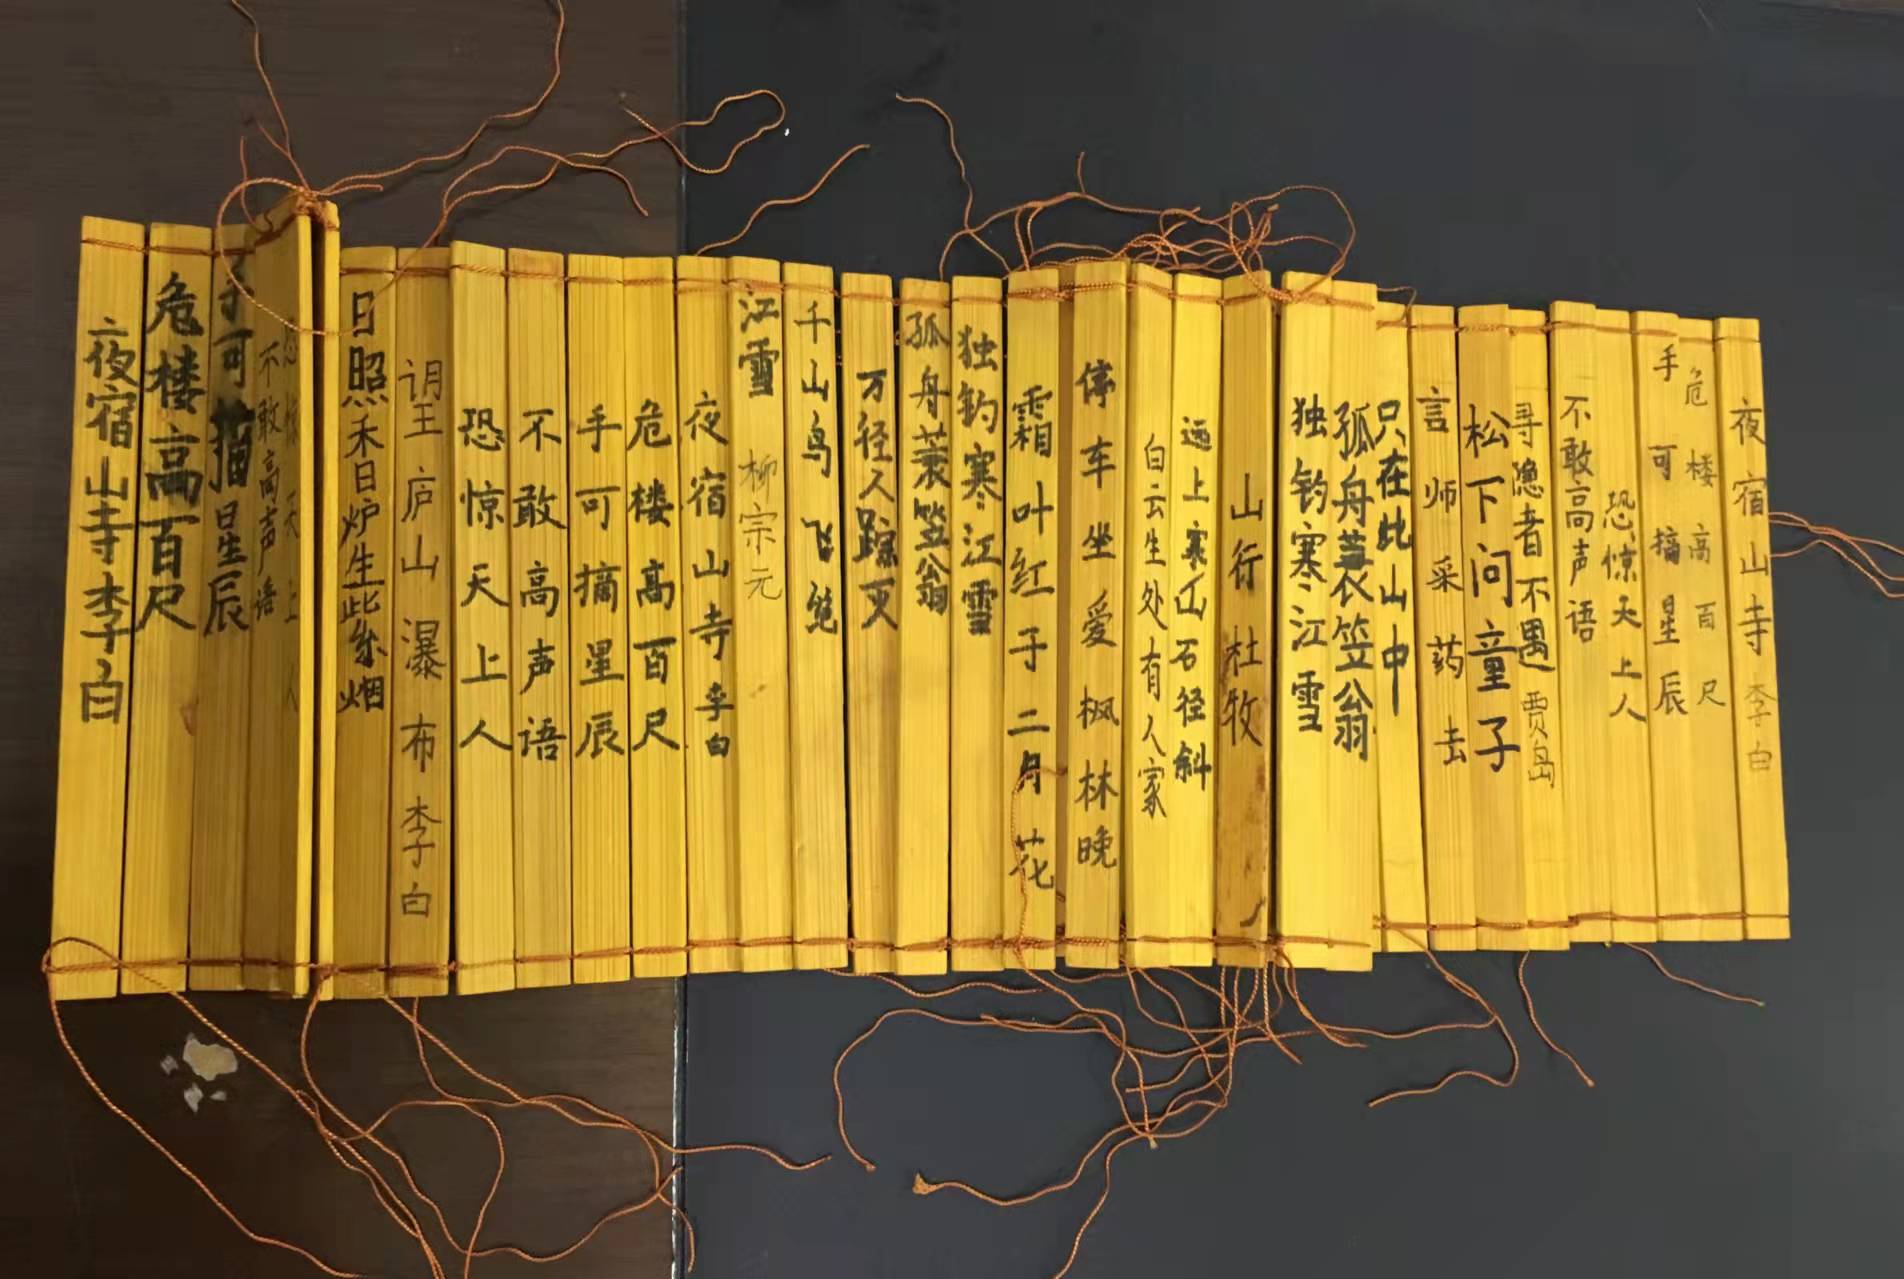 夜宿山寺 李白
危楼高百尺
手可摘星辰
恐惊天上人
不敢高声语
寻隐者不遇 贾岛
松下问童子
言师采药去
只在此山中
孤舟蓑笠翁
独钓寒江雪
山行 杜牧
远上寒山石径斜
白云生处有人家
停车坐爱枫林晚
霜叶红子二月花
独钓寒江雪
孤舟蓑笠翁
万径人踪灭
千山鸟飞绝
江雪 柳宗元
夜宿山寺 李白
危楼高百尺
手可摘星辰
不敢高声语
恐惊天上人
望庐山瀑布 李白
日照香炉生紫烟
恐惊天上人
不敢高声语
可摘星辰
危楼高百尺
夜宿山寺 李白